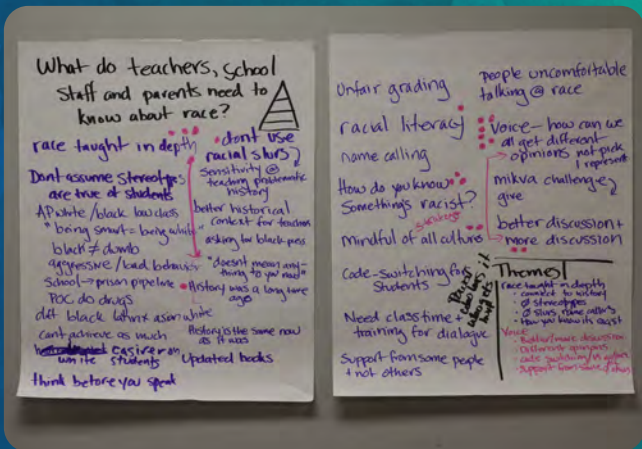 What do teachers, school
staff and parents need to
know about race?
race taught in depth
Dont assume stereotypes
are true of students
AP white / black low class
"being smart = being white"
black ≠ dumb
aggressive / bad behavior
School → prison pipeline
POC do drugs
diff black latinx asian white
cant achieve as much
easier on
white students
think before you speak
dont use
racial slurs
sensitivity @
teaching problematic
history
better historical
context for teachers
asking for black pass
"doesnt mean any-
thing to you now"
History was a long time
ago
History is the same now
as it was
Updated books
Unfair grading
racial literacy
name calling
How do you know
something's racist?
mindful of all culture
Code-switching for
students
Need class time +
training for dialogue
Support from some people
+ not others
people uncomfortable
talking @ race
Voice – how can we
all get different
opinions not pick
1 represent
mikva challenge
give
better discussion +
more discussion
Themes
race taught in depth
connect to history
Ø stereotypes
Ø slurs name calling
how you know its racist
Voice
Better/more discussion
Different opinions
code switching
support from some